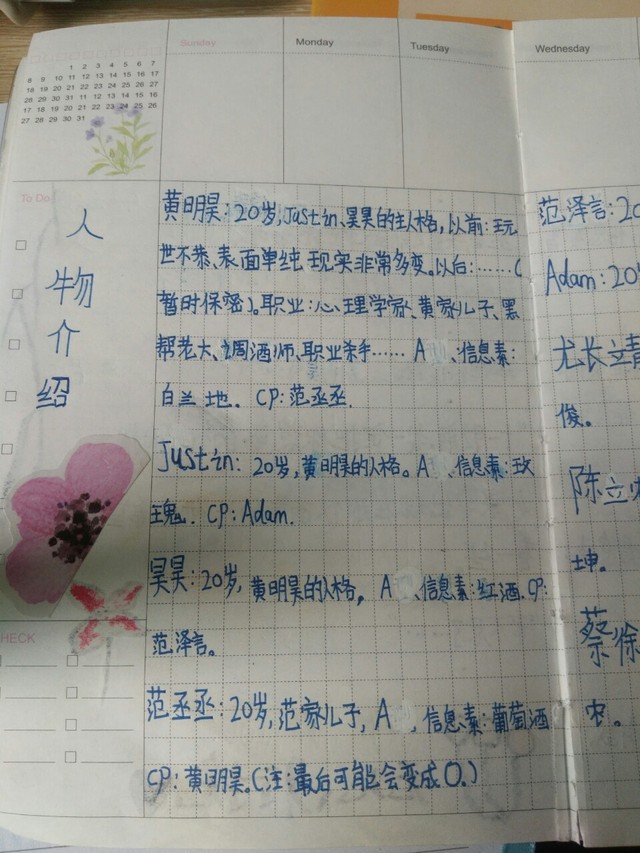 Sunday
Monday
Tuesday
Wednesday
1 2 3 4 5 6 7
8 9 10 11 12 13 14 15 16 17
18 19 20 21 22 23 24 25 26 27
28 29 30 31 11 12 13 14 15 16
17 18 19 20 21 22 23 24 25 26
27 28 29 30 31
To Do
人
物
介
绍
黄明昊:20岁,Justin、昊昊的主人格,以前:玩
世不恭、表面单纯 现实非常多变。以后:……(
暂时保密)。职业:心理学家、黄家儿子、黑
帮老大、调酒师、职业杀手…… A 、信息素:
白兰地. CP:范丞丞.
Justin:20岁,黄明昊的人格。A 、信息素:玫
瑰. CP:Adam.
昊昊:20岁,黄明昊的人格, A 、信息素:红酒.CP:
范泽言。
范丞丞:20岁,范家儿子,A ,信息素:葡萄酒
CP:黄明昊.(注:最后可能会变成O.)
CHECK
范泽言:20
Adam:20
尤长靖
俊。
陈立
坤。
蔡徐
农。